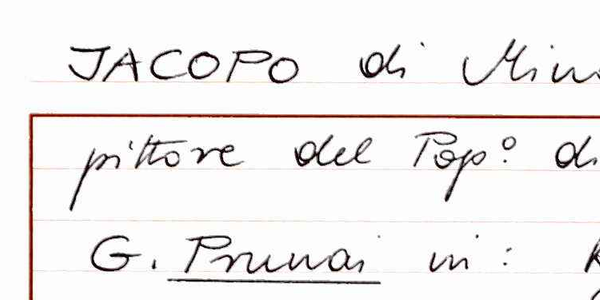 JACOPO di
pittore del Pop.º di
G. Prunai in: